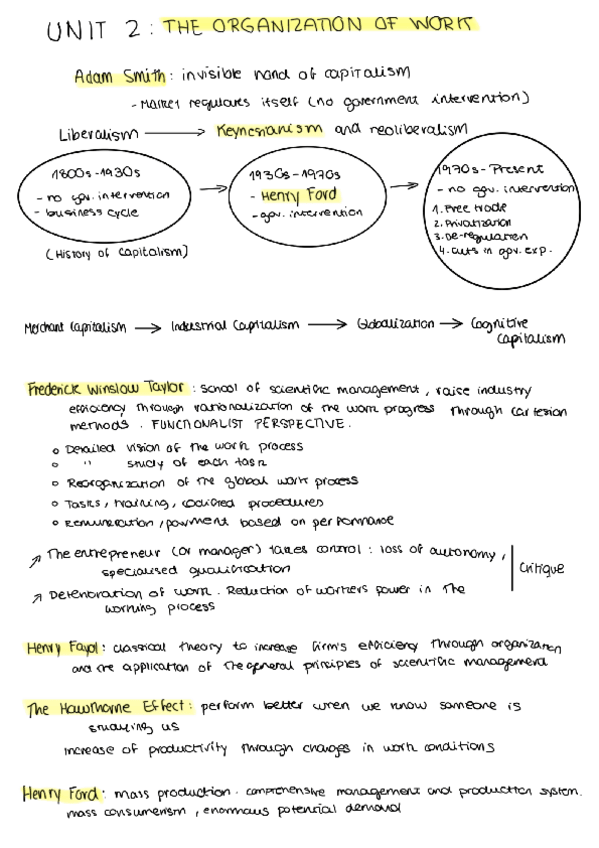 UNIT 2: THE ORGANIZATION OF WORK
Adam Smith: invisible hand of capitalism
- Market regulates itself (no government intervention)
Liberalism → Keynesianism and neoliberalism
1800s-1930s
- no gov. intervention
- business cycle
1930s-1970s
- Henry Ford
- gov. intervention
1970s-Present
- no gov. intervention
1. Free trade
2. Privatization
3. De-regulation
4. cuts in gov. exp.
(History of capitalism)
Merchant capitalism → Industrial Capitalism → Globalization → Cognitive
capitalism
Frederick Winslow Taylor: school of scientific management, raise industry
efficiency through rationalization of the work progress through cartesian
methods. FUNCTIONALIST PERSPECTIVE.
○ Detailed vision of the work process
○ " study of each task
○ Reorganization of the global work process
○ Tasks, training, codified procedures
○ Remuneration/payment based on performance
↗ The entrepreneur (or manager) takes control: loss of autonomy,
specialised qualification
↗ Deterioration of work. Reduction of workers power in the
working process
critique
Henry Fayol: classical theory to increase firm's efficiency through organization
and the application of the general principles of scientific management
The Hawthorne Effect: perform better when we know someone is
studying us
increase of productivity through changes in work conditions
Henry Ford: mass production. comprehensive management and production system.
mass consumerism, enormous potential demand